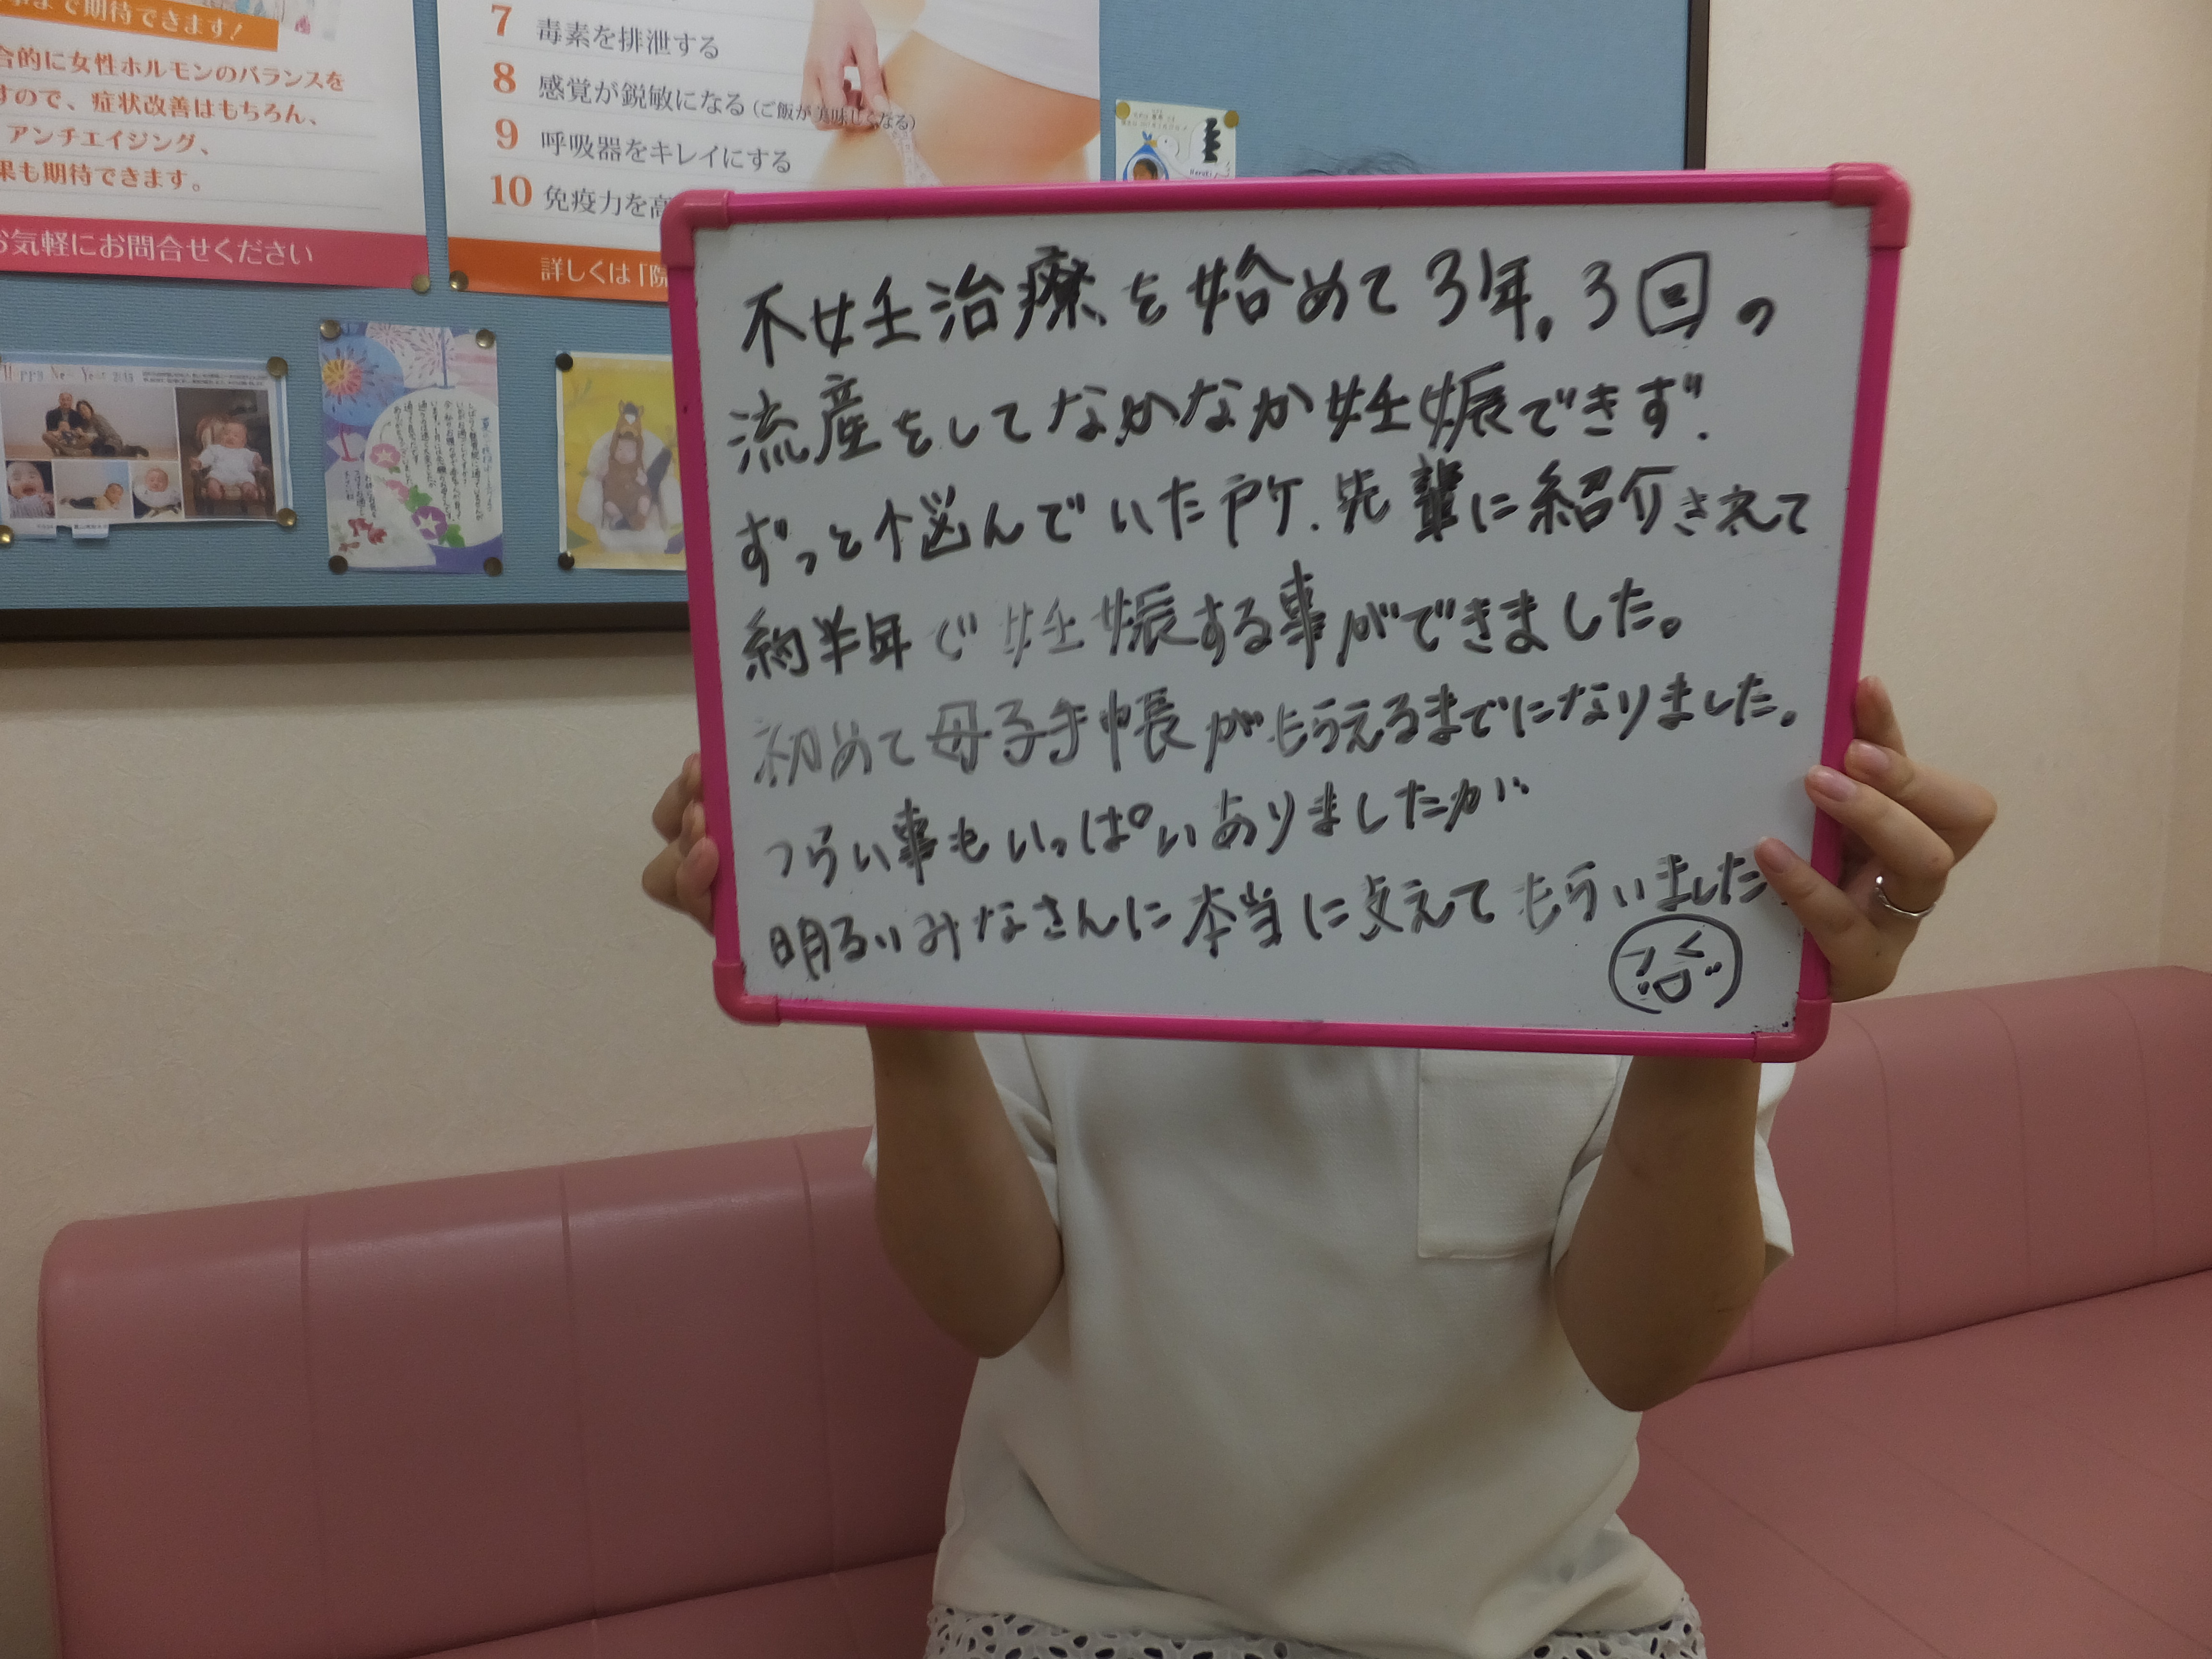 期待できます!
合的に女性ホルモンのバランスを
すので、症状改善はもちろん、
アンチエイジング、
果も期待できます。
お気軽にお問合せください
7 毒素を排泄する
8 感覚が鋭敏になる(ご飯が美味しくなる)
9 呼吸器をキレイにする
10 免疫力を高
詳しくは「院
Happy New Year
不妊治療を始めて3年。3回の
流産をしてなかなか妊娠できず.
ずっと悩んでいた所.先輩に紹介されて
約半年で妊娠する事ができました。
初めて母子手帳がもらえるまでになりました。
つらい事もいっぱいありましたが
明るいみなさんに本当に支えてもらいました